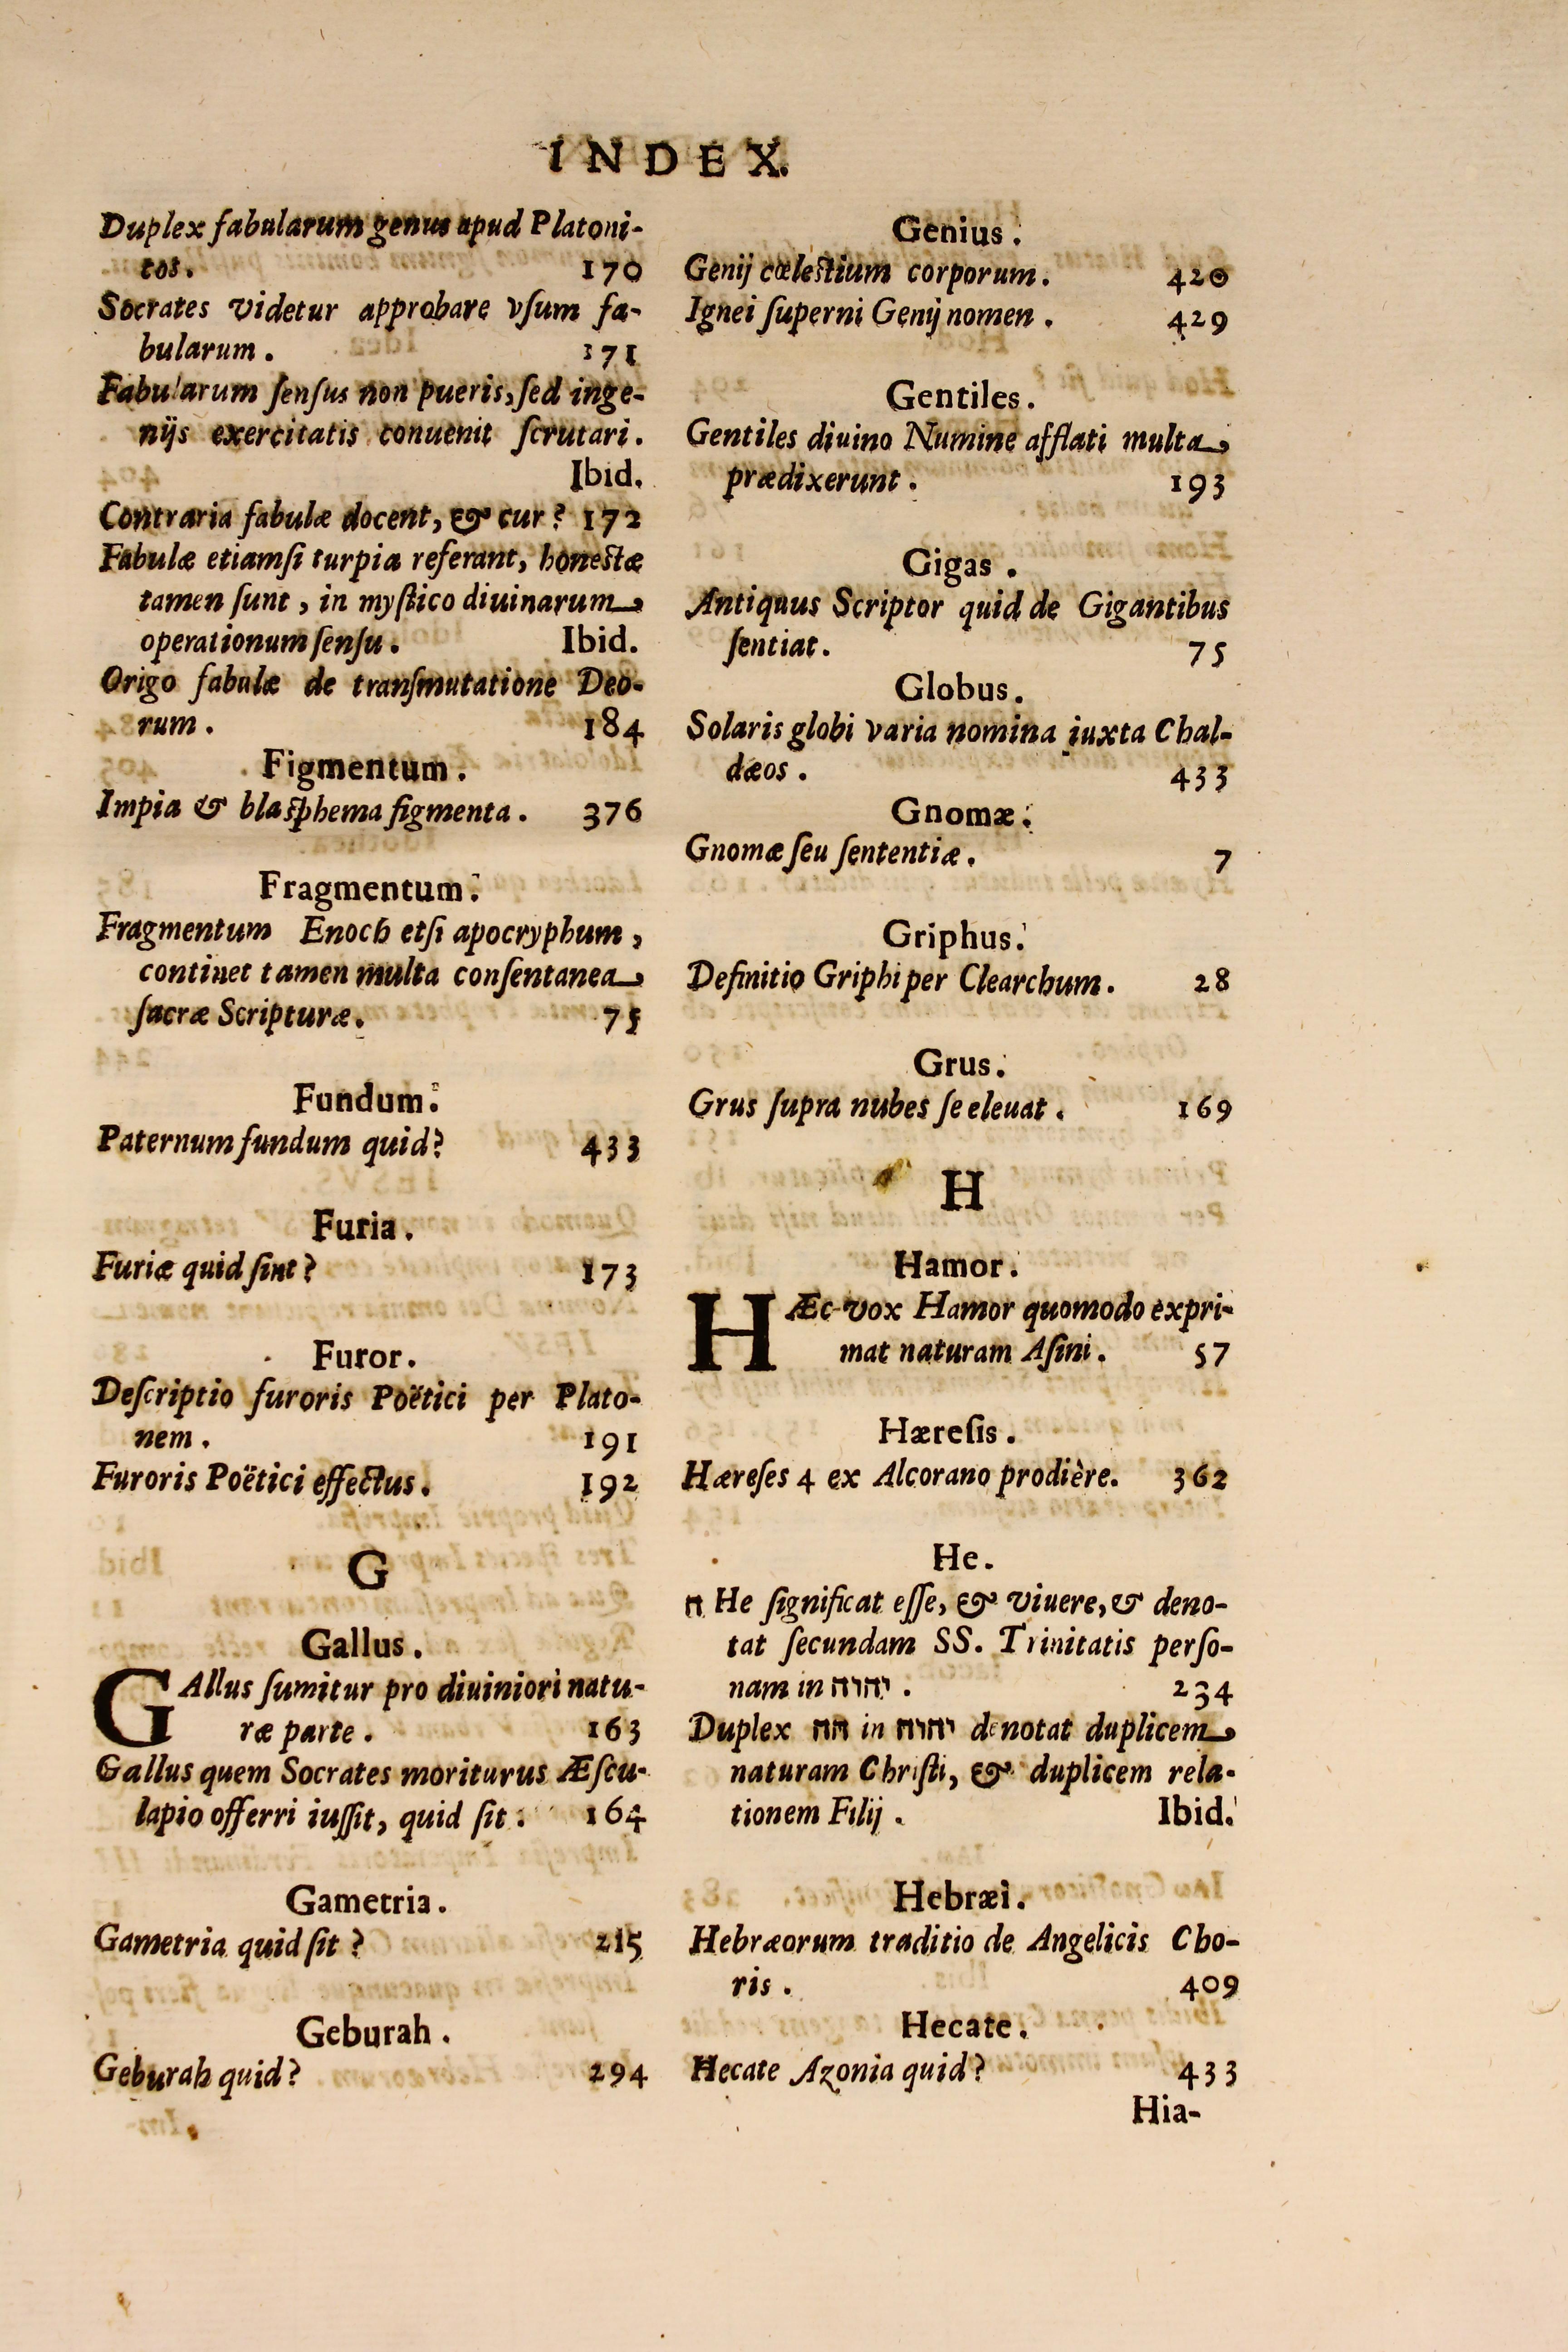 INDEX.
Duplex fabularum genus apud Platoni-
cos. 170
Socrates videtur approbare vſum fa-
bularum. 171
Fabularum ſenſus non pueris, ſed inge-
nijs exercitatis conuenit ſcrutari.
Ibid.
Contraria fabulæ docent, & cur? 172
Fabulæ etiamſi turpia referant, honestæ
tamen ſunt, in myſtico diuinarum
operationum ſenſu. Ibid.
Origo fabulæ de tranſmutatione Deo-
rum. 184
Figmentum.
Impia & blasphema figmenta. 376
Fragmentum.
Fragmentum Enoch etſi apocryphum,
continet tamen multa conſentanea
ſacræ Scripturæ. 75
Fundum.
Paternum fundum quid? 433
Furia.
Furiæ quid ſint? 173
Furor.
Deſcriptio furoris Poëtici per Plato-
nem. 191
Furoris Poëtici effectus. 192
G
Gallus.
GAllus ſumitur pro diuiniori natu-
ræ parte. 163
Gallus quem Socrates moriturus Æſcu-
lapio offerri iuſſit, quid ſit. 164
Gametria.
Gametria quid ſit? 215
Geburah.
Geburah quid? 294
Genius.
Genij cœlestium corporum. 420
Ignei ſuperni Genij nomen. 429
Gentiles.
Gentiles diuino Numine afflati multa
prædixerunt. 193
Gigas.
Antiquus Scriptor quid de Gigantibus
ſentiat. 75
Globus.
Solaris globi varia nomina iuxta Chal-
dæos. 433
Gnomæ.
Gnomæ ſeu ſententiæ. 7
Griphus.
Definitio Griphi per Clearchum. 28
Grus.
Grus ſupra nubes ſe eleuat. 169
H
Hamor.
HÆc vox Hamor quomodo expri-
mat naturam Aſini. 57
Hæreſis.
Hæreſes 4 ex Alcorano prodière. 362
He.
ה He ſignificat eſſe, & viuere, & deno-
tat ſecundam SS. Trinitatis perſo-
nam in יהוה. 234
Duplex הה in יהוה denotat duplicem
naturam Chriſti, & duplicem rela-
tionem Filij. Ibid.
Hebræi.
Hebræorum traditio de Angelicis Cho-
ris. 409
Hecate.
Hecate Azonia quid? 433
Hia-